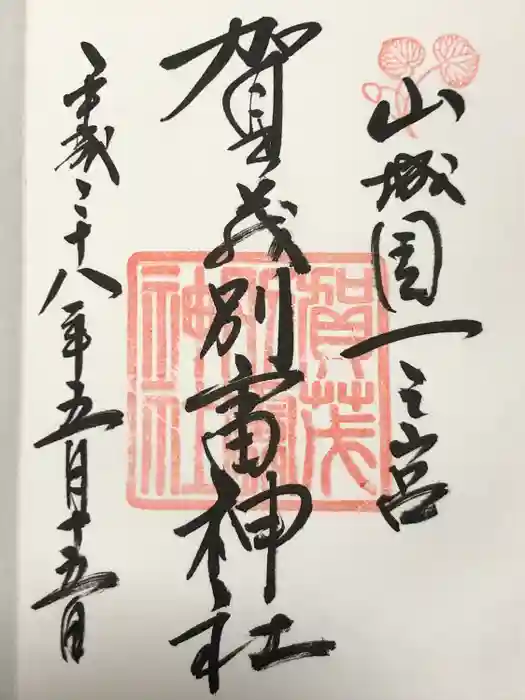 山城国一之宮
賀茂別雷神社
平成二十八年五月十五日
賀茂別雷神社